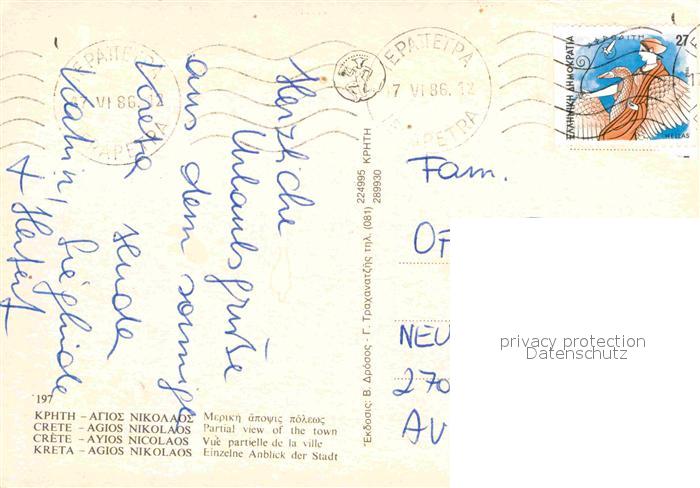 Herzliche
Urlaubsgrüße
aus dem sonnigen
Kreta senden
Katrin, Sieglinde
+ Herbert
ΙΕΡΑΠΕΤΡΑ
17 VI 86
IERAPETRA
ΙΕΡΑΠΕΤΡΑ
17 VI 86. 12
IERAPETRA
ΑΦΡΟΔΙΤΗ
27
ΕΛΛΗΝΙΚΗ ΔΗΜΟΚΡΑΤΙΑ
HELLAS
Fam.
OF
NEU
270
AU
privacy protection
Datenschutz
Ἔκδοσις: Β. Δρόσος - Γ. Τραχανατζής τηλ. (081) 224995 ΚΡΗΤΗ
289930
197
ΚΡΗΤΗ – ΑΓΙΟΣ ΝΙΚΟΛΑΟΣ Μερική ἄποψις πόλεως
CRETE – AGIOS NIKOLAOS Partial view of the town
CRÈTE – AYIOS NICOLAOS Vue partielle de la ville
KRETA – AGIOS NIKOLAOS Einzelne Anblick der Stadt